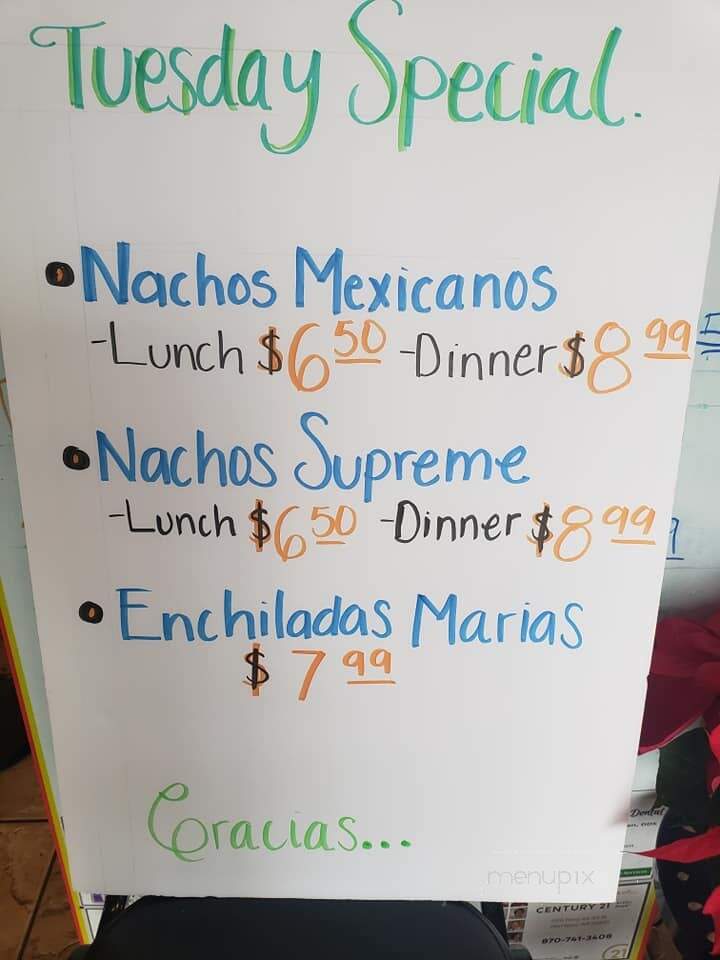 Tuesday Special.
• Nachos Mexicanos
-Lunch $6.50 -Dinner $8.99
• Nachos Supreme
-Lunch $6.50 -Dinner $8.99
• Enchiladas Marias
$7.99
Gracias...
menupix
Dental
CENTURY 21
870-741-3408
21